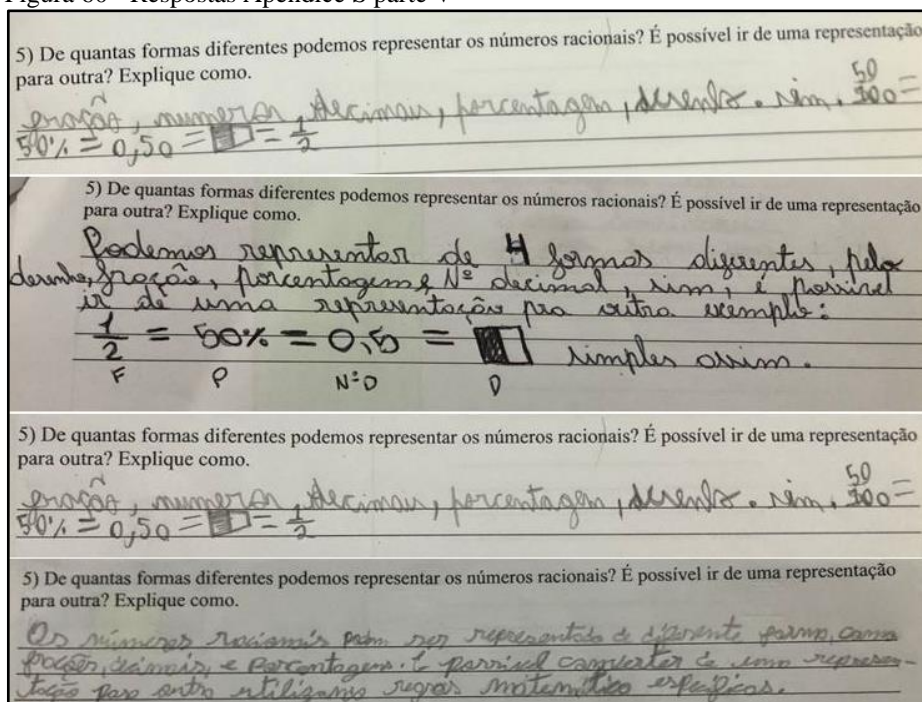 5) De quantas formas diferentes podemos representar os números racionais? É possível ir de uma representação
para outra? Explique como.
fração, numeros, decimais, porcentagem, desenho. sim. 50/100 =
50% = 0,50 = = 1/2
5) De quantas formas diferentes podemos representar os números racionais? É possível ir de uma representação
para outra? Explique como.
Podemos representar de 4 formas diferentes, pelo
desenho, fração, porcentagem e Nº decimal, sim, é possivel
ir de uma representação pra outra exemplo:
1/2 = 50% = 0,5 = simples assim.
F P Nº D D
5) De quantas formas diferentes podemos representar os números racionais? É possível ir de uma representação
para outra? Explique como.
fração, numeros, decimais, porcentagem, desenho. sim. 50/100 =
50% = 0,50 = = 1/2
5) De quantas formas diferentes podemos representar os números racionais? É possível ir de uma representação
para outra? Explique como.
Os números racionais ser representado de diferente forma, como
frações, decimais, e Porcentagens. É possivel converter de uma represen-
tação para outra utilizamo regras matemática específicas.